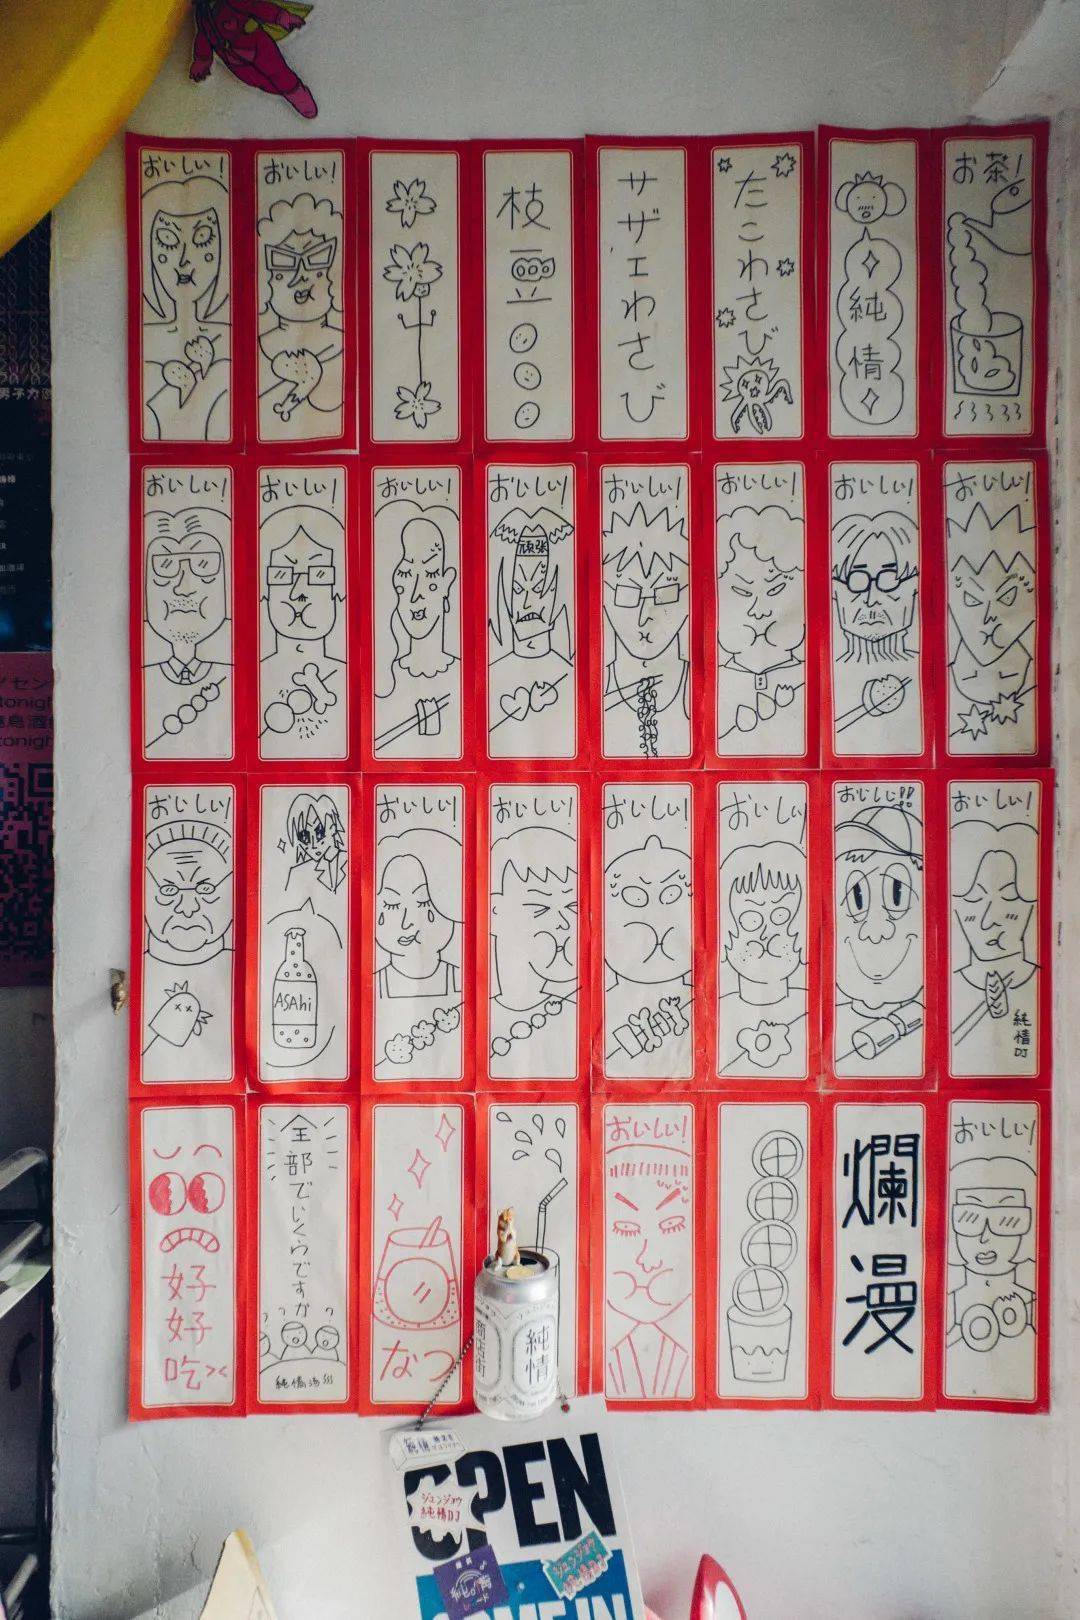 おいしい!
おいしい!
枝豆
サザエわさび
たこわさび
純情
お茶!
おいしい!
おいしい!
おいしい!
おいしい!
頑張
おいしい!
おいしい!
おいしい!
おいしい!
おいしい!
ASAhi
おいしい!
おいしい!
おいしい!
おいしい!
おいしい!!
おいしい!
純情DJ
好好吃><
全部でいくらですか
なつ
おいしい!
爛漫
おいしい!
商店街
純情
OPEN
ジュンジョウ
純情DJ